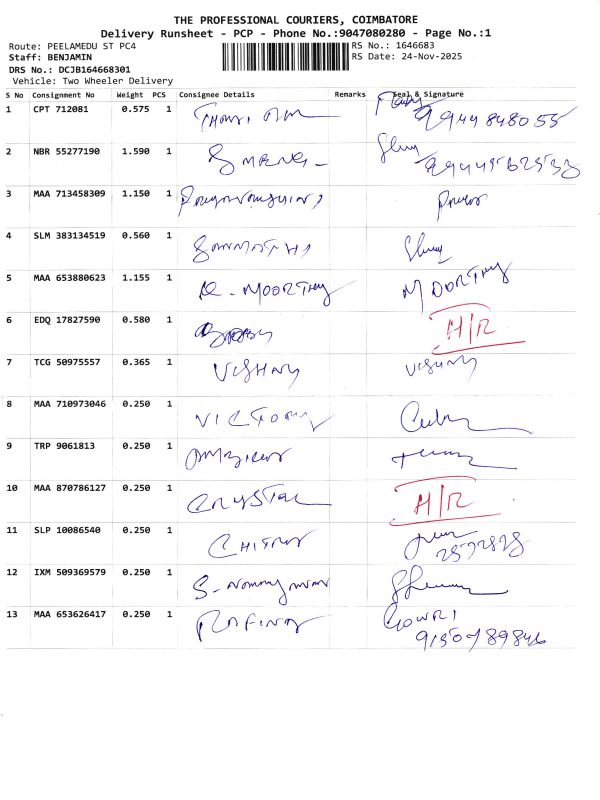 THE PROFESSIONAL COURIERS, COIMBATORE
Delivery Runsheet - PCP - Phone No.:9047080280 - Page No.:1
Route: PEELAMEDU ST PC4 RS No.: 1646683
Staff: BENJAMIN RS Date: 24-Nov-2025
DRS No.: DCJB164668301
Vehicle: Two Wheeler Delivery
S No Consignment No Weight PCS Consignee Details Remarks Seal & Signature
1 CPT 712081 0.575 1
2 NBR 55277190 1.590 1
3 MAA 713458309 1.150 1
4 SLM 383134519 0.560 1
5 MAA 653880623 1.155 1 R-MOORTHY MOORTHY
6 EDQ 17827590 0.580 1 H/R
7 TCG 50975557 0.365 1 VISHNU VISHNU
8 MAA 710973046 0.250 1 VICTORY
9 TRP 9061813 0.250 1
10 MAA 870786127 0.250 1 CRYSTAL H/R
11 SLP 10086540 0.250 1 CHITRA
12 IXM 509369579 0.250 1
13 MAA 653626417 0.250 1 GOWRI